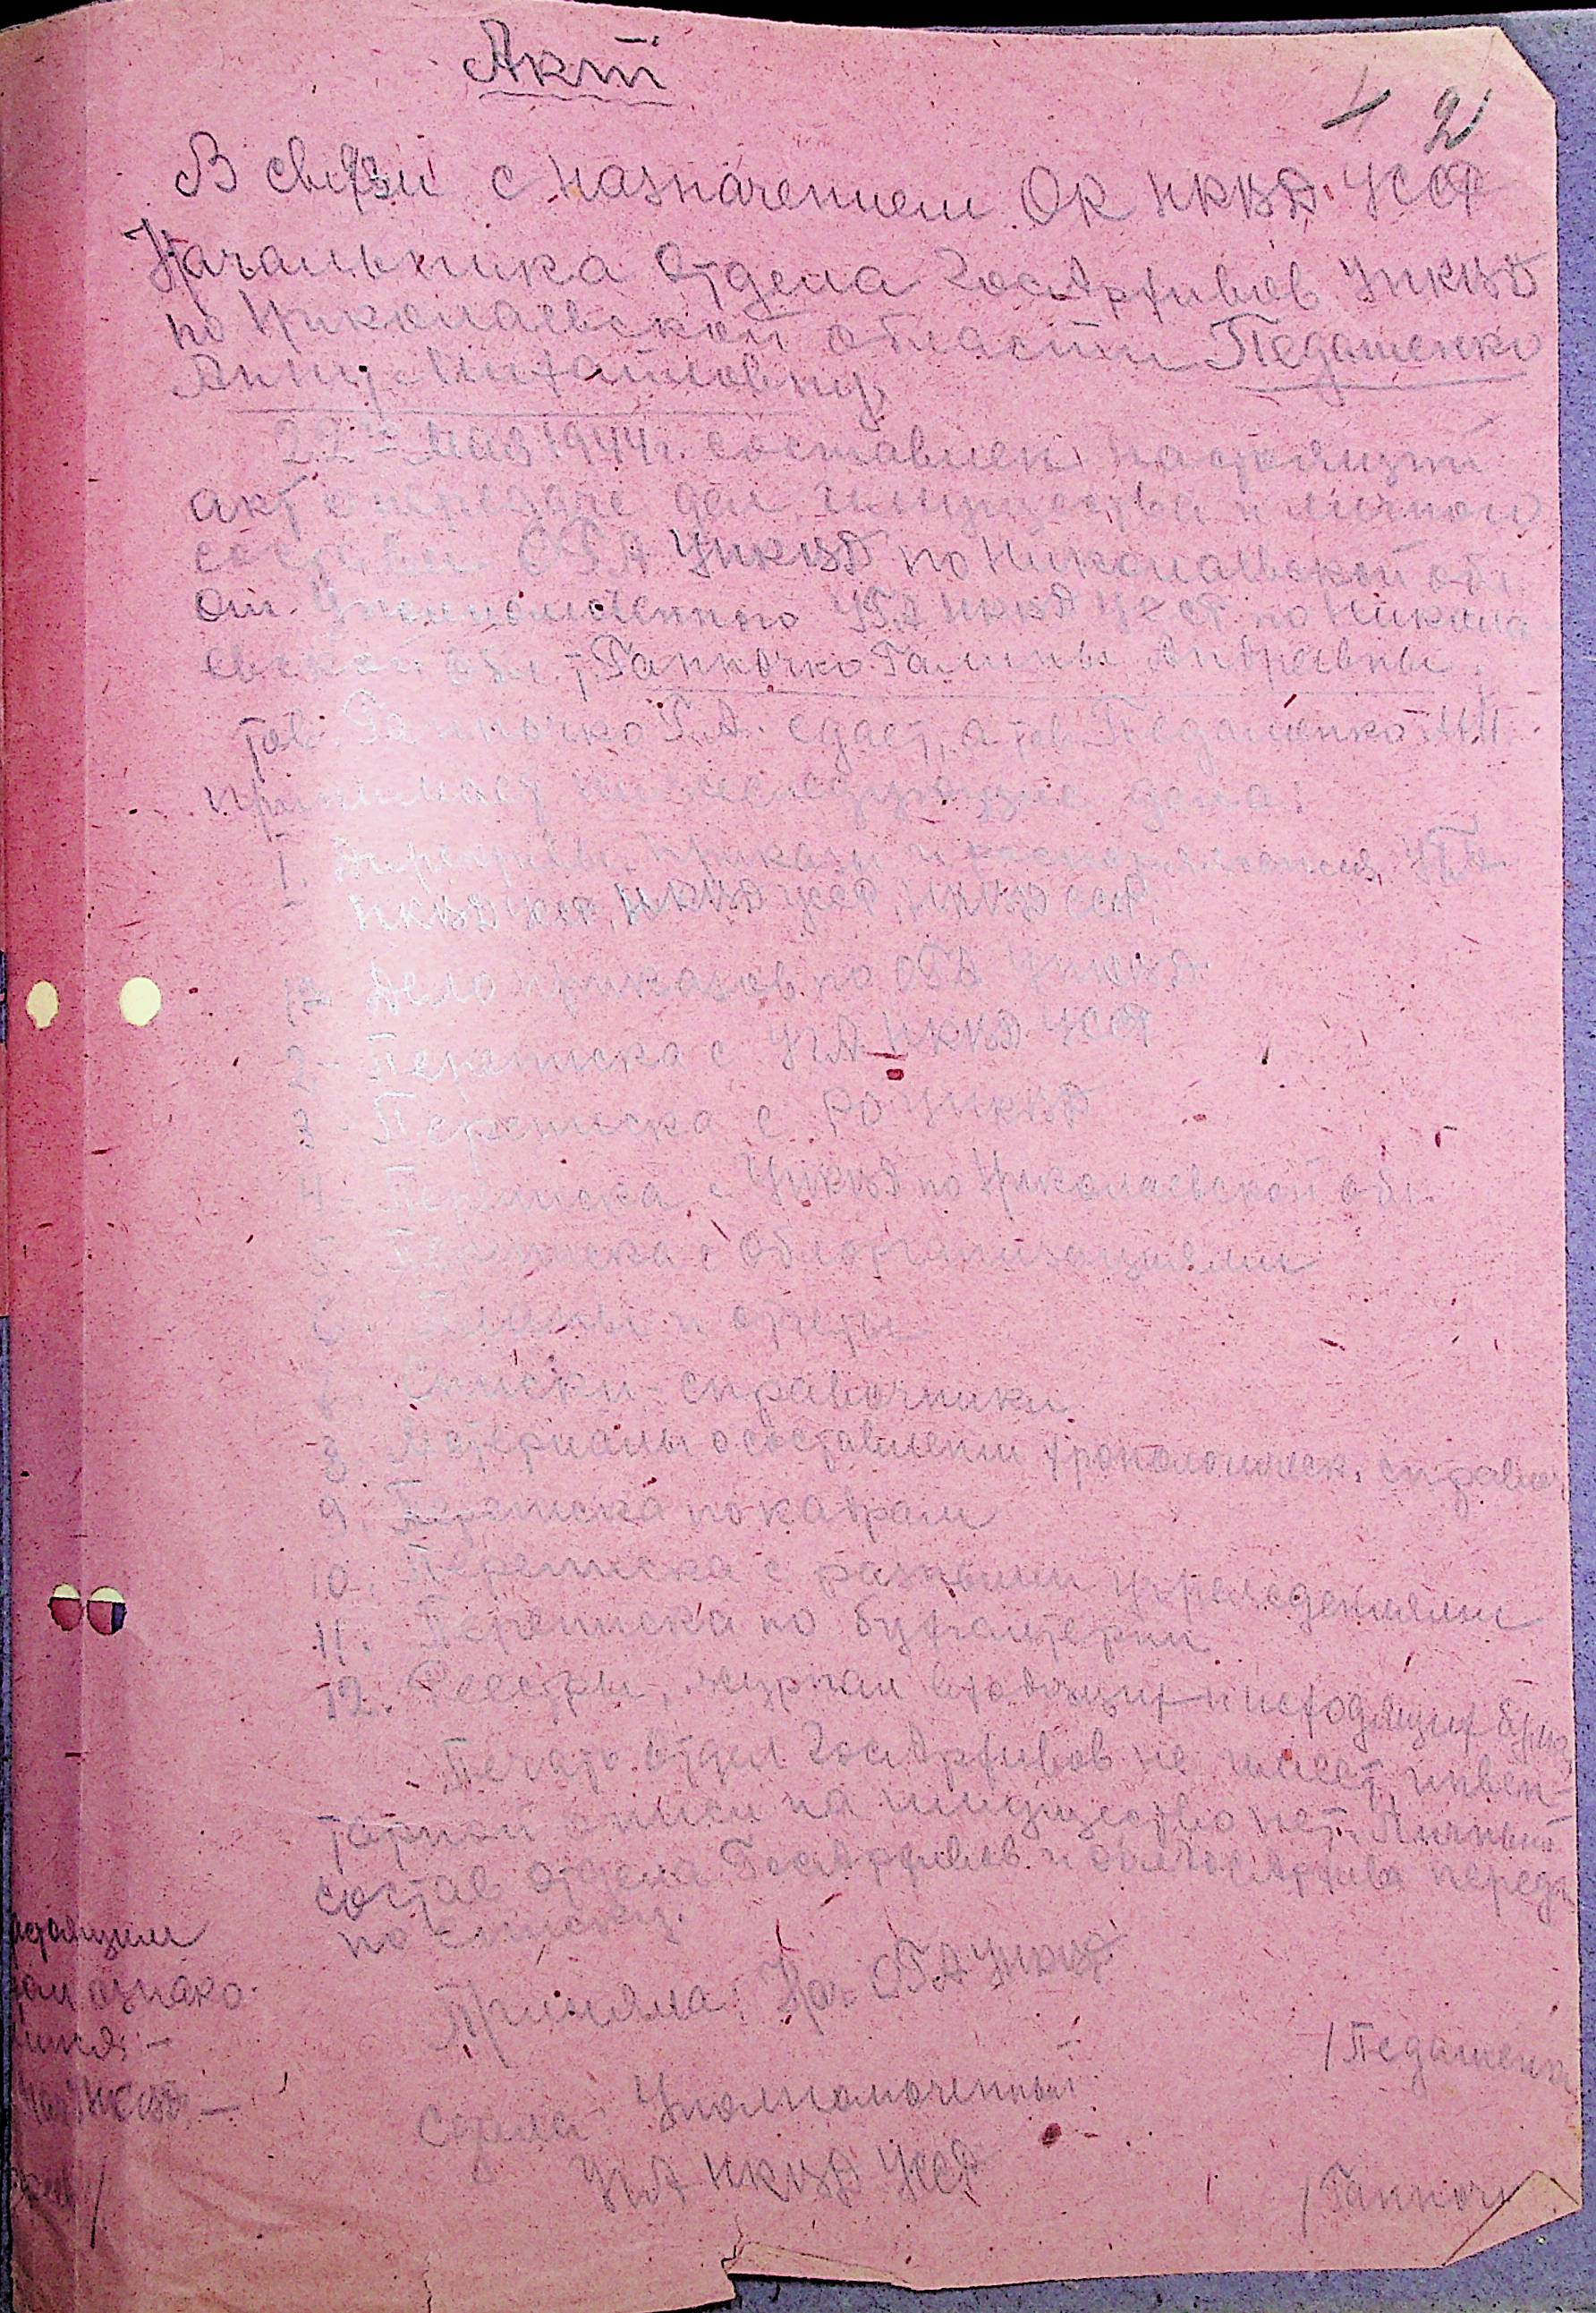 Акт
1 2
В связи с назначением ОК НКВД УССР
Начальника Отдела Госархивов УНКВД
по Николаевской области Педашенко
Анну Михайловну,
22го мая 1944 г. составлен настоящий
акт о передаче дел, имущества и личного
состава ОГА УНКВД по Николаевской обл.
От Уполномоченного УГА НКВД УССР по Никола-
евской обл. т. Ганночко Галины Андреевны.
Тов. Ганночко Г.А. сдает, а тов. Педашенко
принимает нижеследующие дела:
1. Директивы, приказы и распоряжения УГА
НКВД УССР, НКВД УССР, НКВД СССР.
Дело приказов по ОГА УНКВД
2- Переписка с УГА НКВД УССР
3- Переписка с РО УНКВД
4- Переписка с УНКВД по Николаевской обл.
5. Переписка с облорганизациями
6. Планы и отчеты
7. Списки, справочники
8. Материалы о составлении хронологическ. справоч
9. Переписка по кадрам
10. Переписка с разными учреждениями
11. Переписка по бухгалтерии
12. Реестры, журнал входящих и исходящих бумаг
Печати Отдел Госархивов не имеет, инвен-
тарной описи на имущество нет. Личный
состав Отдела Госархивов и облгосархива передан
по списку.
Приняла: Нач ОГА УНКВД
/Педашенк
Сдала: Уполномоченный
УГА НКВД УССР
/Ганночк
астоящим
том ознако-
мился: –
УНКВД –